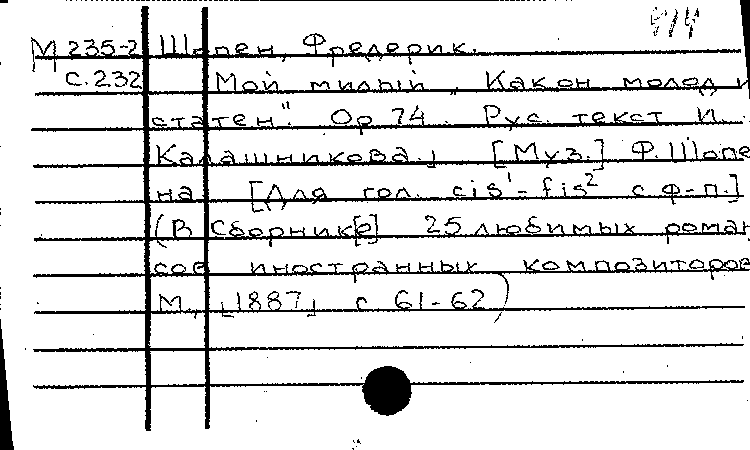 414
М 235-2 Шопен, Фредерик.
с. 232 Мой милый „Как он молод и
статен". Op 74. Рус. текст И.
Калашникова.⌋ [Муз.] Ф. Шопе
на [Для гол. cis¹ - fis² с ф-п.]
(В Сборник[е] 25 любимых роман
сов иностранных композиторов
М., ⌊1887⌋ с 61-62)